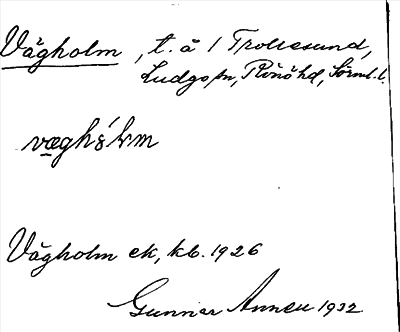 Vågholm, t. å 1 Trollesund,
Ludgo sn, Rönö hd, Sörml. l.
væghòlm
Vågholm ek, kb. 1926
Gunnar 1932